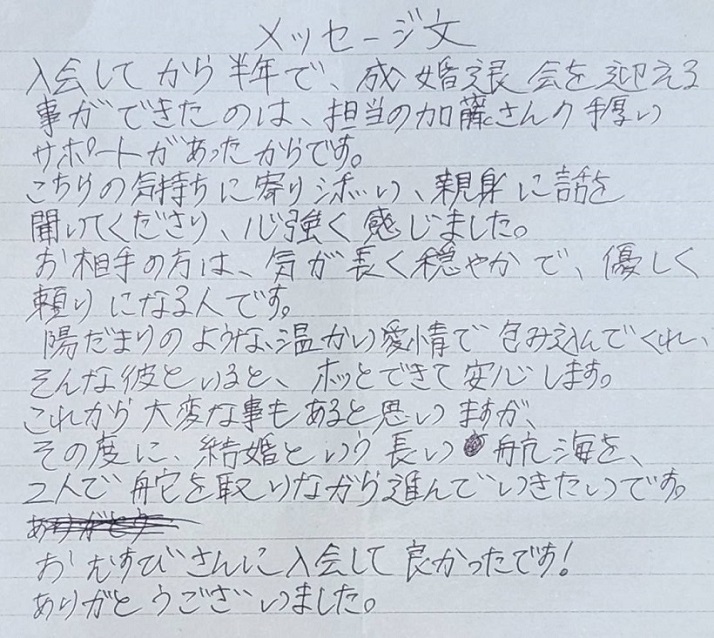 メッセージ文
入会してから半年で、成婚退会を迎える
事ができたのは、担当の加藤さんの手厚い
サポートがあったからです。
こちらの気持ちに寄り添い、親身に話を
聞いてくださり、心強く感じました。
お相手の方は、気が長く穏やかで、優しく
頼りになる人です。
陽だまりのような、温かい愛情で包み込んでくれ、
そんな彼といると、ホッとできて安心します。
これから大変な事もあると思いますが、
その度に、結婚という長い航海を、
2人で舵を取りながら進んでいきたいです。
ありがとう
おむすびさんに入会して良かったです!
ありがとうございました。